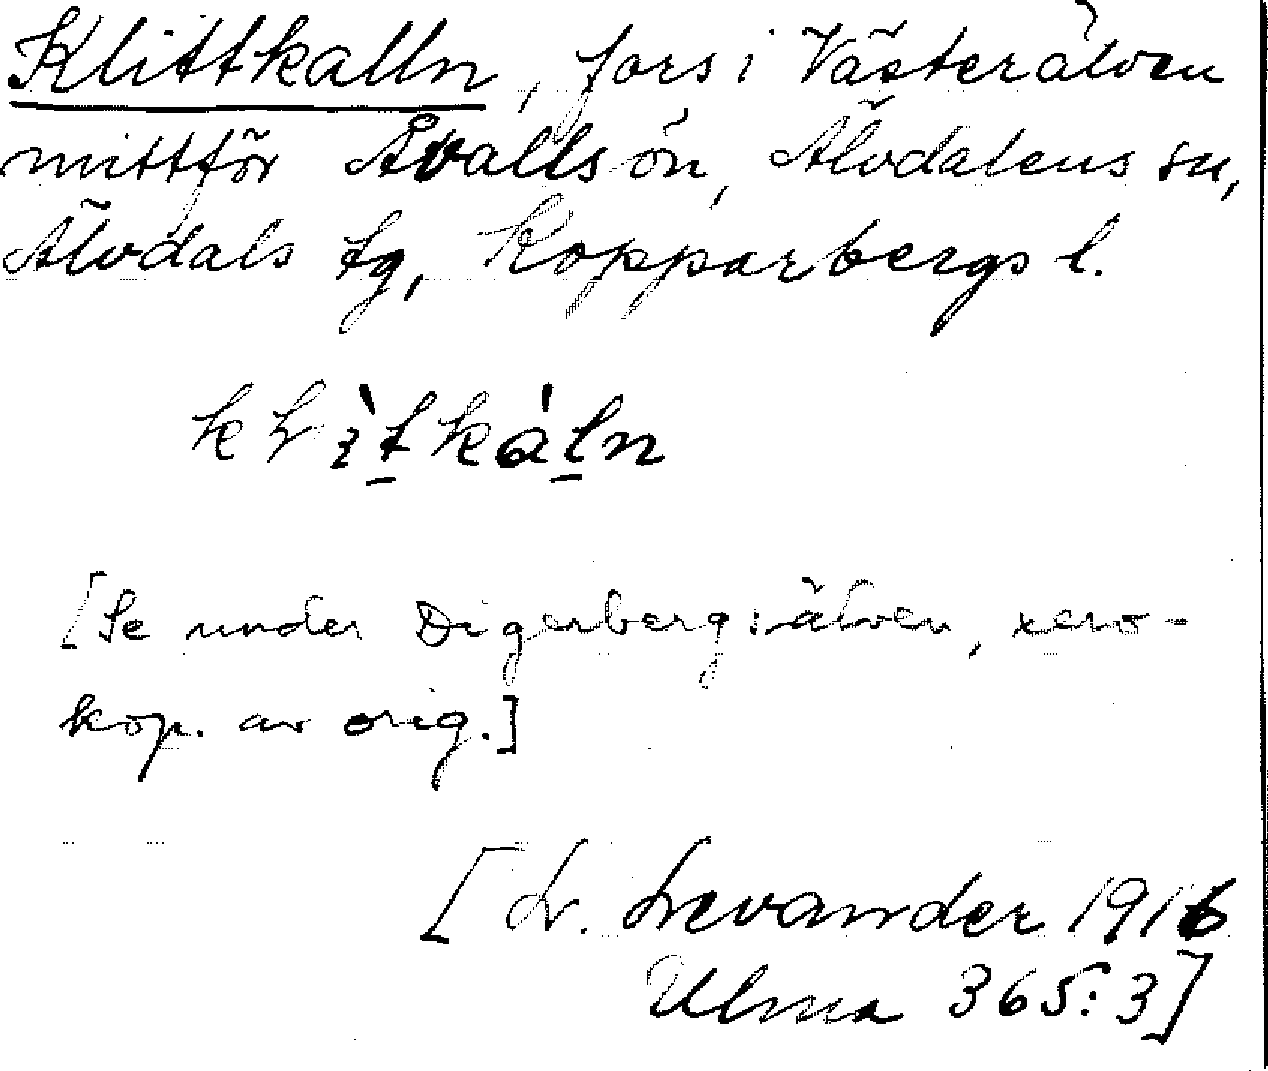 Klittkalln, fors i Västerälven
mittför Åvallsön, Älvdalens sn,
Älvdals tg, Kopparbergs l.
[Se under Digerbergsälven, xero-
kop. av orig.]
[L. Levander 1916
Ulma 365:3]